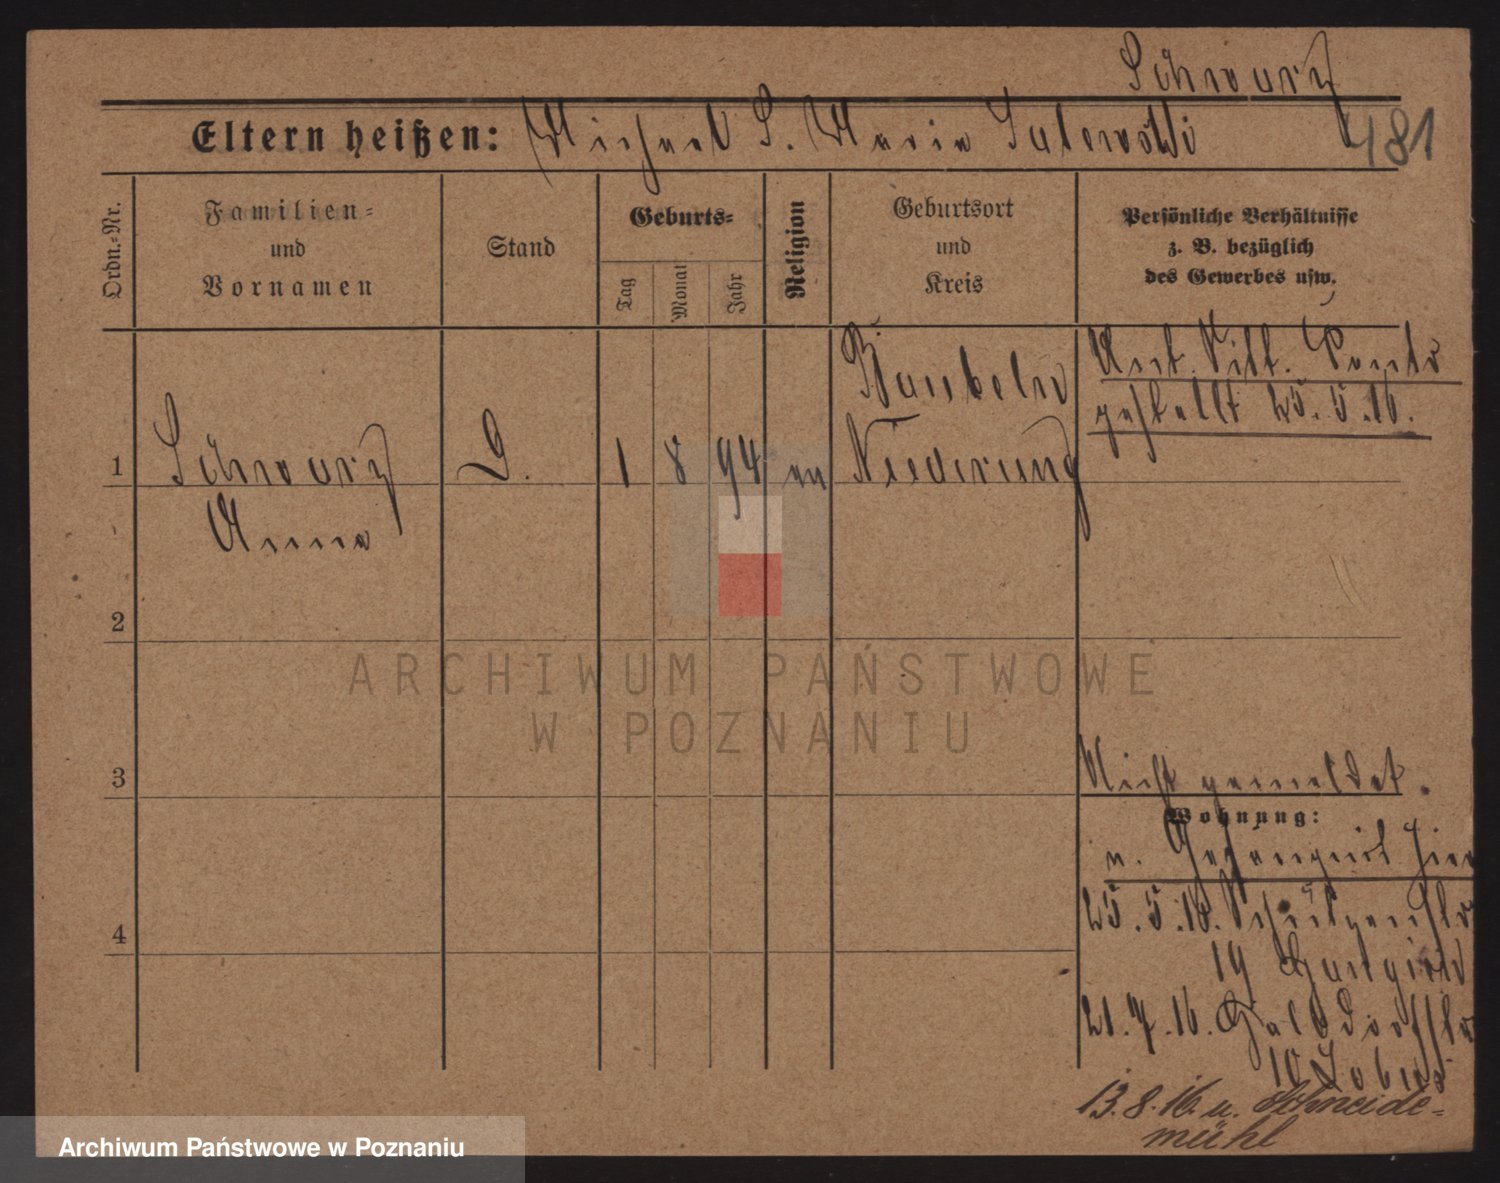 Schwarz
Eltern heißen: Michael S. Maria
481
Ordn.-Nr.
Familien-
und
Vornamen
Stand
Geburts-
Tag
Monat
Jahr
Religion
Geburtsort
und
Kreis
Persönliche Verhältnisse
z. B. bezüglich
des Gewerbes usw.
gestellt 25.5.16.
1 Schwarz D. 1 8 94 Niederung
Anna
2
3
Nicht gemeldet.
Wohnung:
n. Gefängnis hier
25.5.16. Schützenstr
19
4
21.7.16.
10
13.8.16. n. Schneide-
mühl
ARCHIWUM PAŃSTWOWE
W POZNANIU
Archiwum Państwowe w Poznaniu